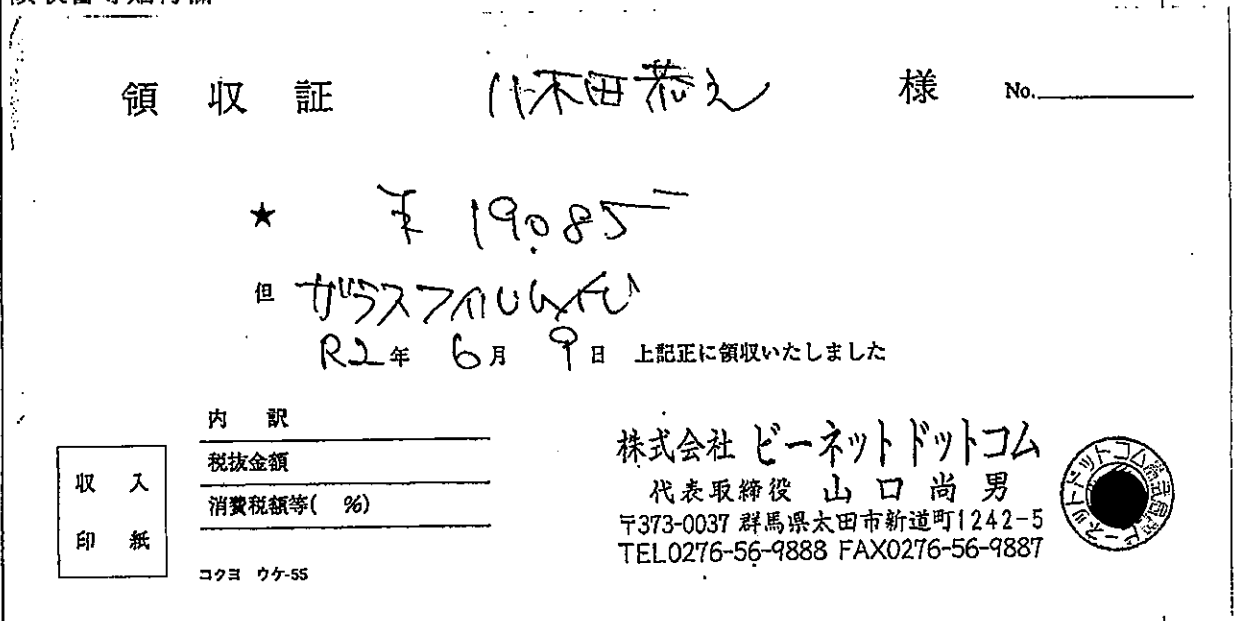 領収証 八木田恭之 様 No.
★ ¥19,085-
但 ガラスフィルム代
R2年 6月 9日 上記正に領収いたしました
内 訳
税抜金額
消費税額等( %)
収入
印紙
コクヨ ウケ-55
株式会社 ビーネットドットコム
代表取締役 山口尚男
〒373-0037 群馬県太田市新道町1242-5
TEL0276-56-9888 FAX0276-56-9887